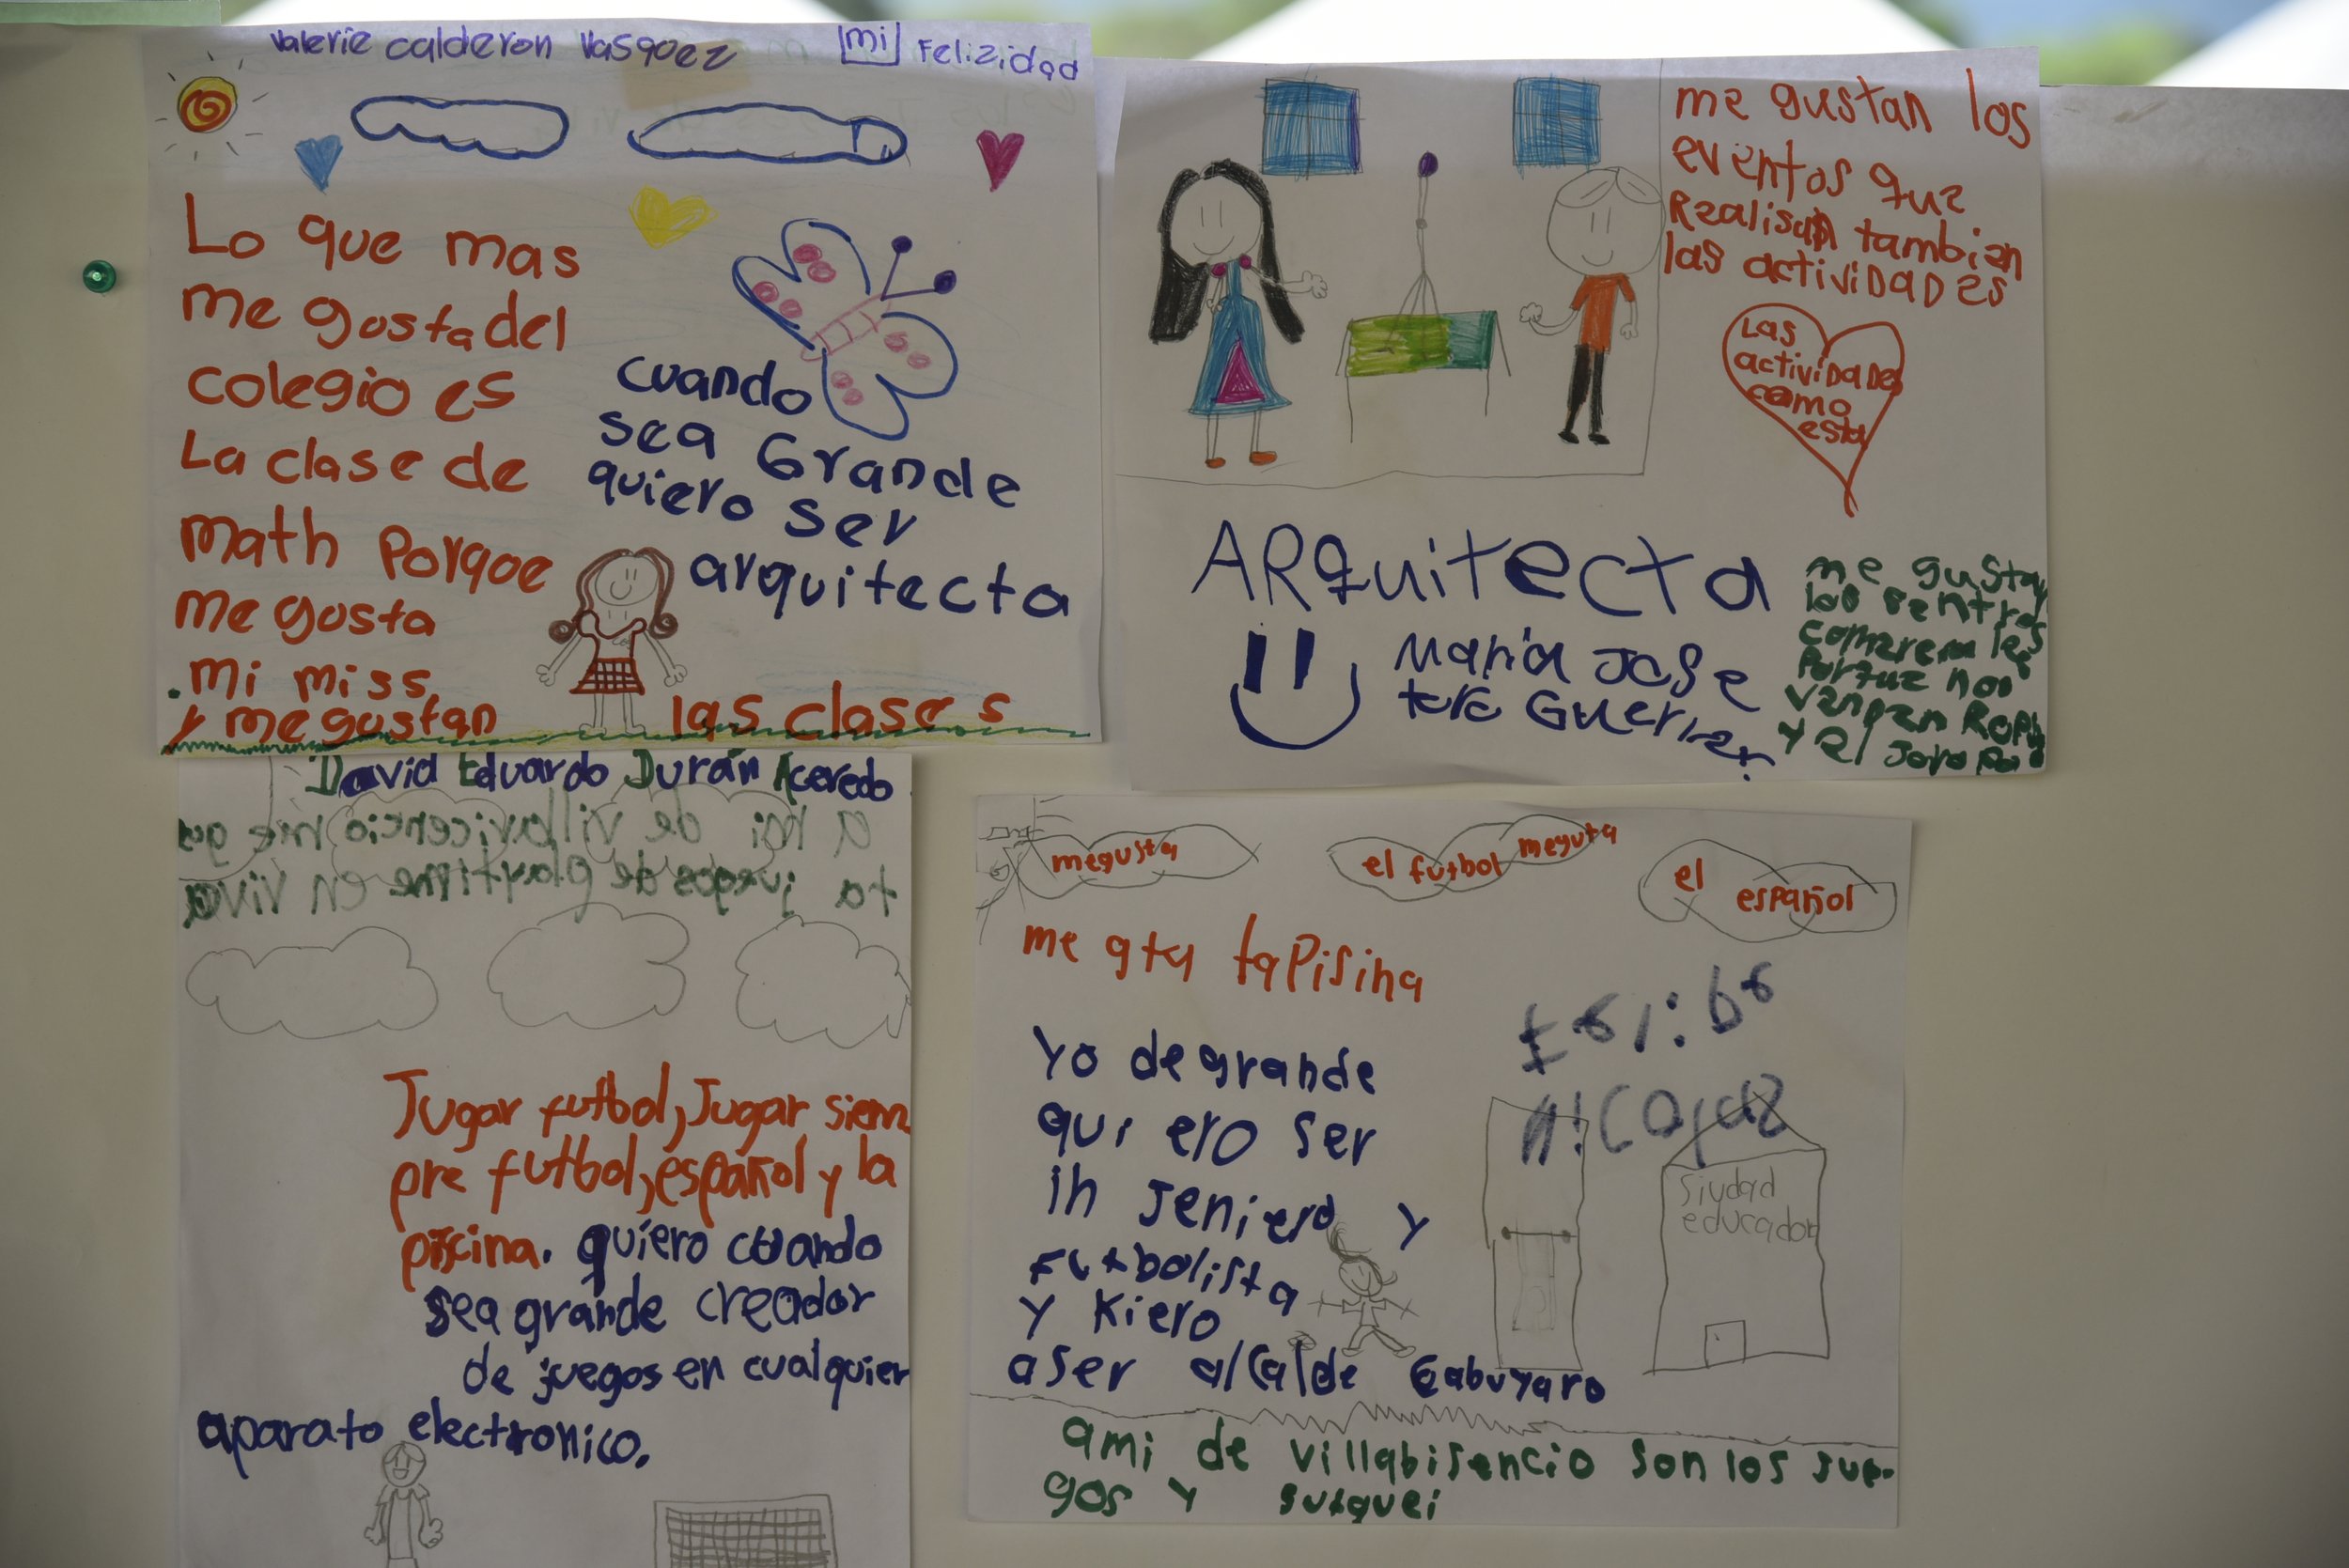 Valerie calderon Vasquez
mi Felizidad
Lo que mas
me gosta del
colegio es
La clase de
math Porqoe
me gosta
mi miss
y me gustan las clases
cuando
sea Grande
quiero ser
arquitecta
me gustan los
eventos que
Realisan tambien
las actividades
Las
actividades
como
esta
ARquitecta
Maria Jose
toro Guerrer
me gusta
los sentros
comerem les
Porque nos
venden Ropa
y el Joropo
David Eduardo Durán Acevedo
a mi de villavicencio me gus
ta juegos de playtime en viva
Jugar futbol, Jugar siem
pre futbol, español y la
piscina. quiero cuando
sea grande creador
de juegos en cualquier
aparato electronico.
megusta
el futbol meguta
el español
me gta la Pisina
Yo de grande
qui ero ser
in jeniero y
Futbolista
y Kiero
aser alcalde Cabuyaro
Siudad
educador
ami de villabisencio son los jue-
gos y